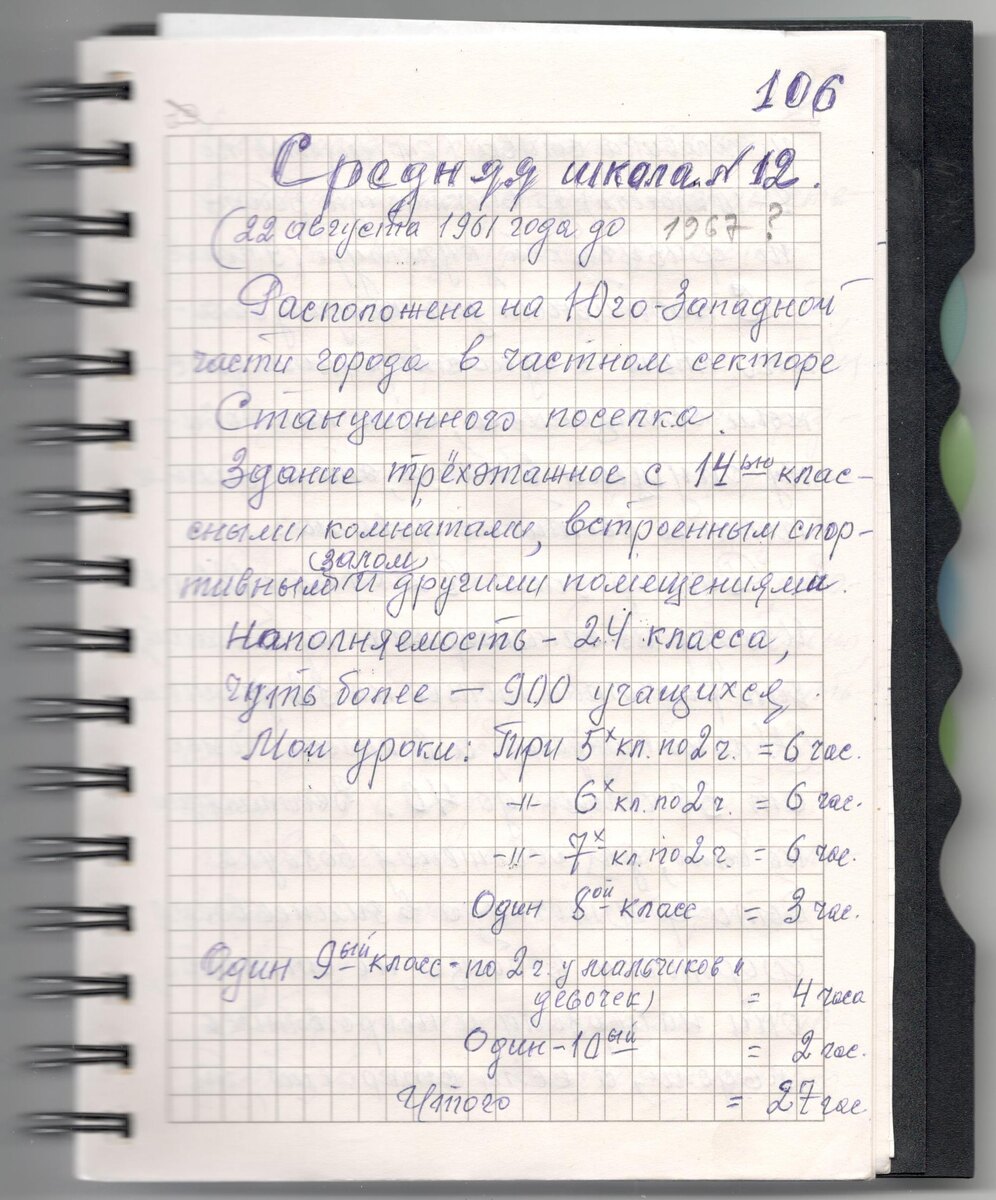 106
Средняя школа №12.
(22 августа 1961 года до 1967?
Расположена на Юго-Западной
части города в частном секторе
Станционного поселка.
Здание трёхэтажное с 14ью клас-
сными комнатами, встроенным спор-
(залом)
тивным и другими помещениями.
Наполняемость - 24 класса,
чуть более - 900 учащихся,
Мои уроки: Три 5х кл. по 2 ч. = 6 час.
-"- 6х кл. по 2 ч. = 6 час.
-"- 7х кл. по 2 ч. = 6 час.
Один 8ой класс = 3 час.
Один 9ый класс - по 2 ч. у мальчиков и
девочек) = 4 часа
Один - 10ый = 2 час.
Итого = 27 час